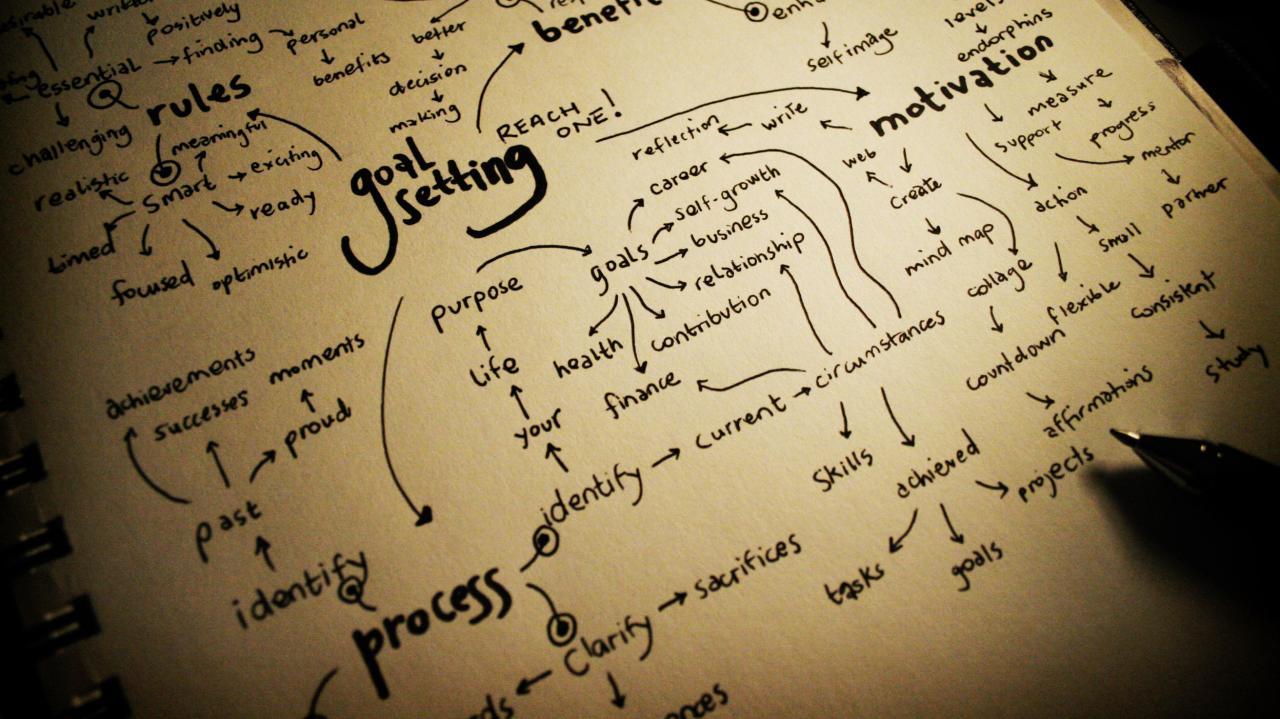 positively
essential
finding
personal
benefits
better
decision
making
self image
levels
endorphins
rules
challenging
meaningful
realistic
smart
exciting
ready
timed
focused
optimistic
goal
setting
REACH
ONE!
motivation
measure
progress
support
mentor
partner
write
reflection
web
create
mind map
collage
countdown
affirmations
action
small
flexible
consistent
study
career
self-growth
goals
business
relationship
contribution
health
finance
purpose
life
your
identify
current
circumstances
skills
achieved
projects
tasks
goals
achievements
successes
moments
proud
past
identify
process
clarify
sacrifices